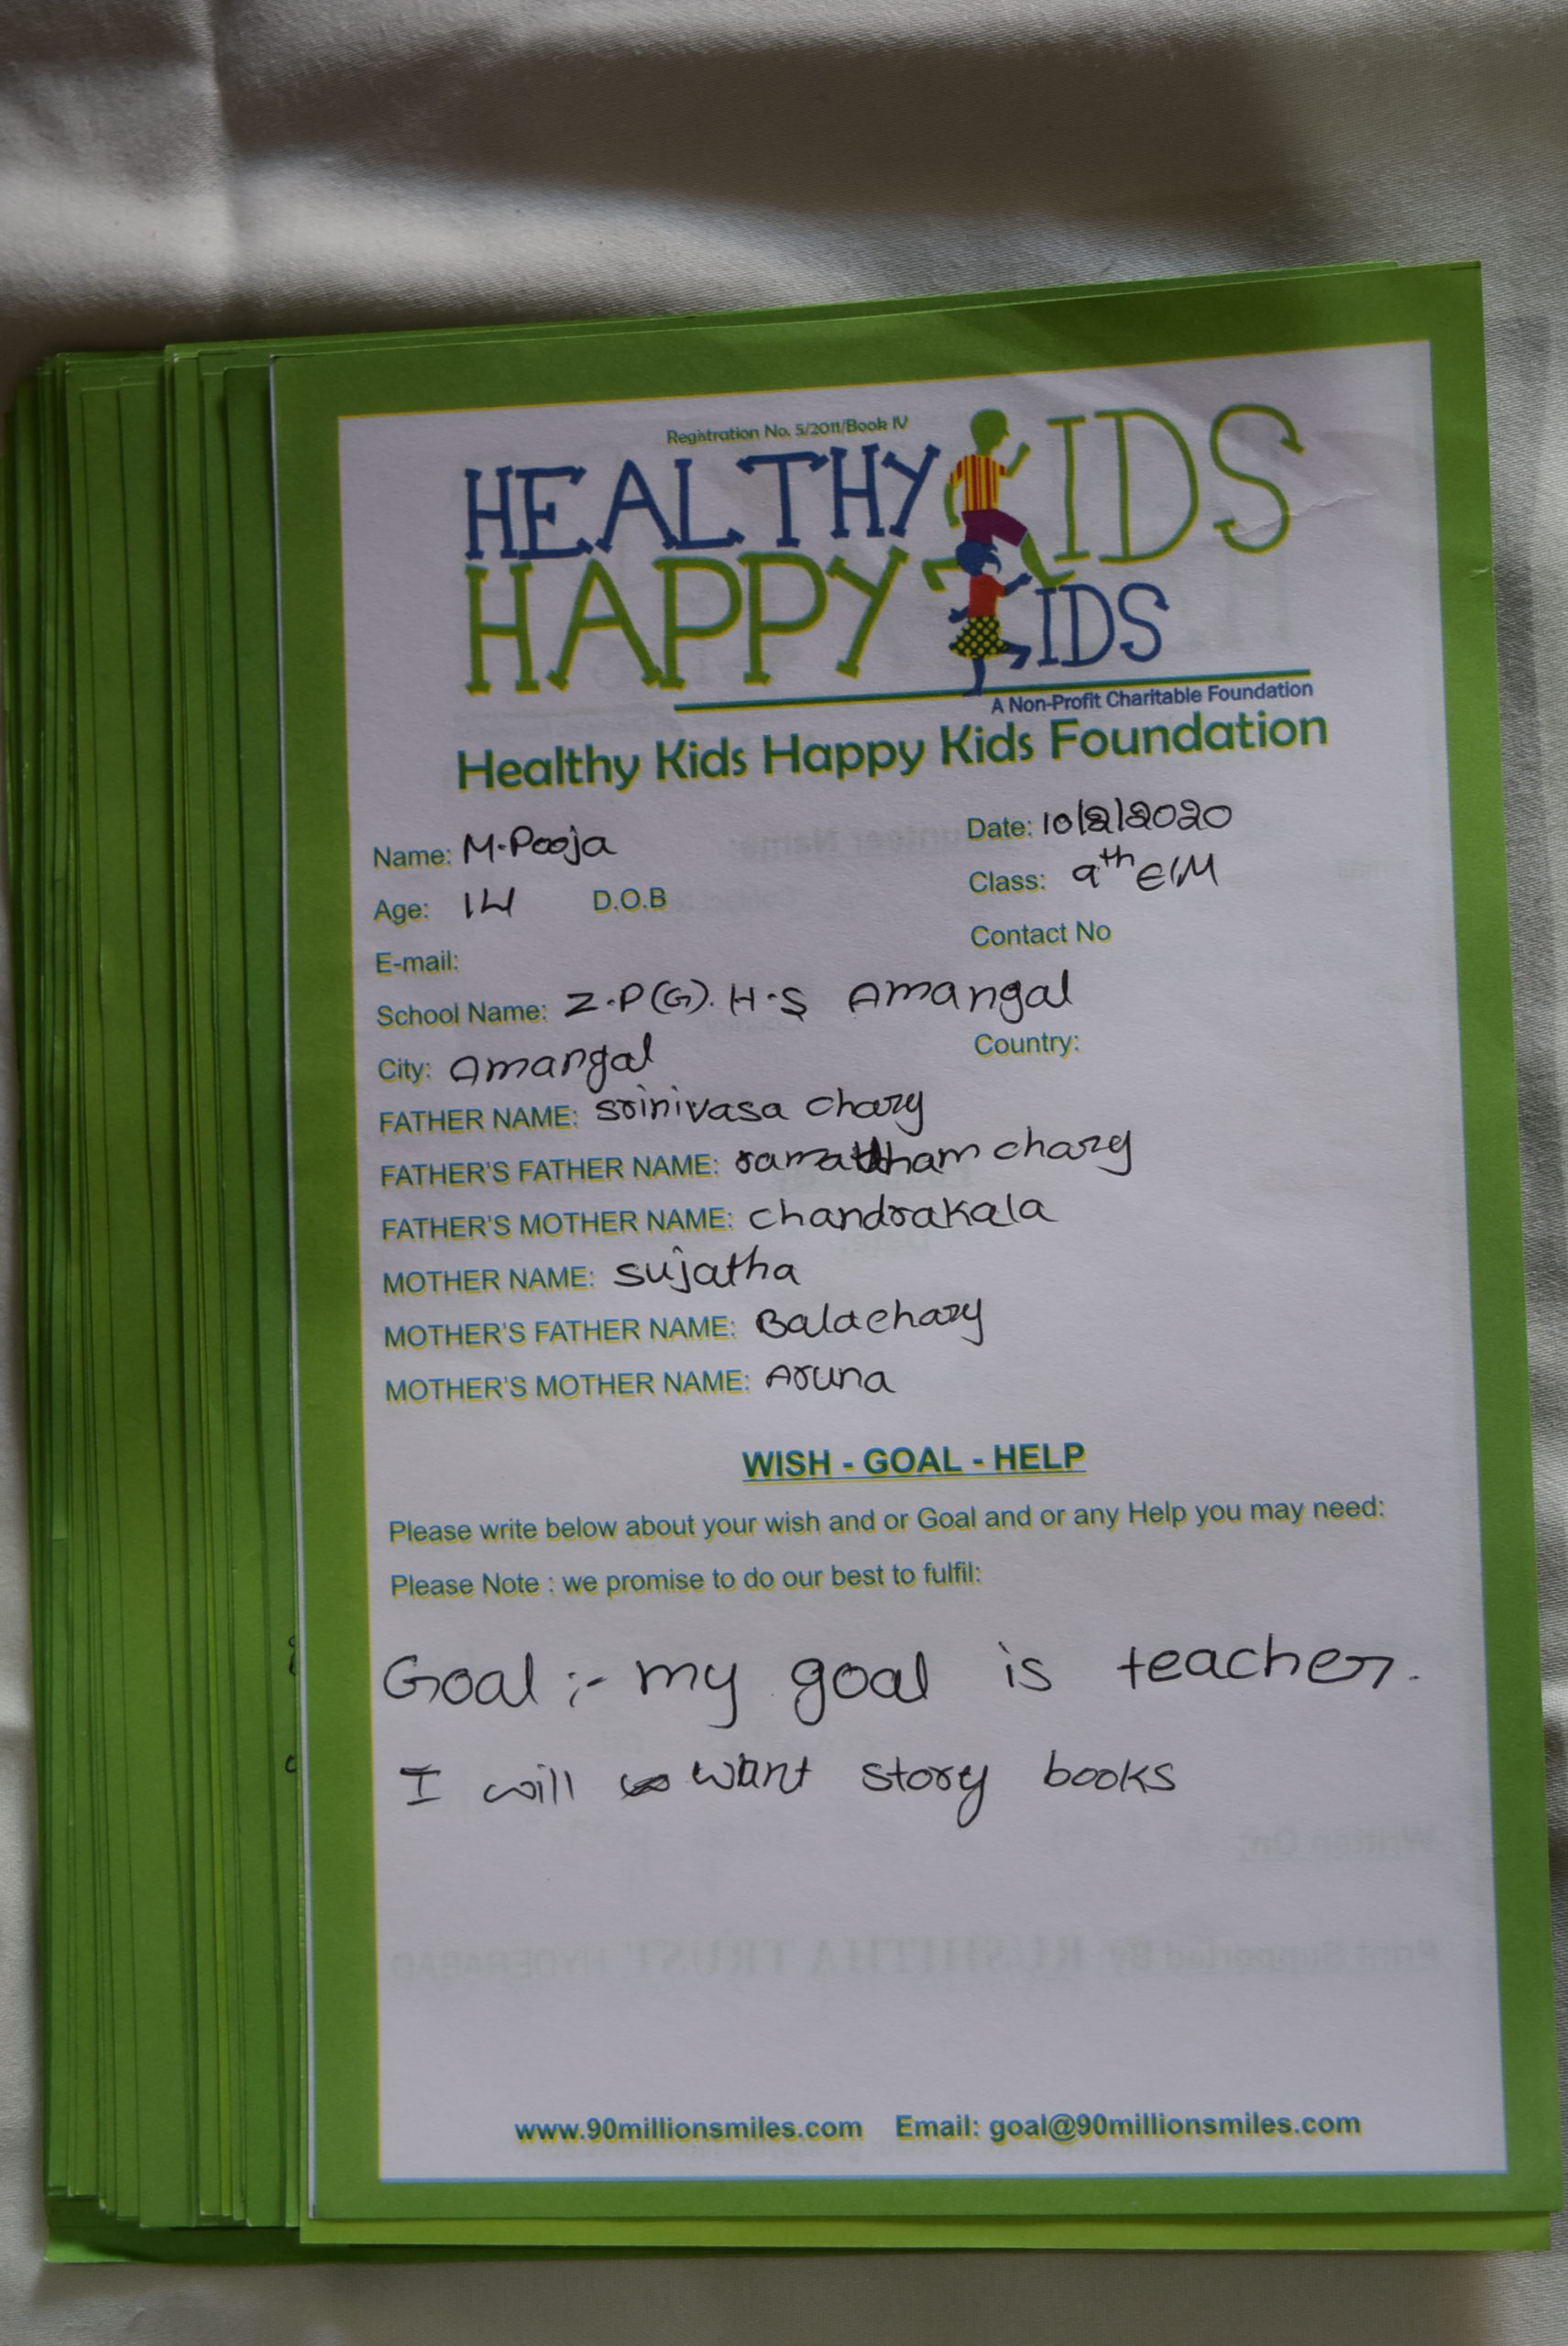 Registration No. 5/2011/Book IV
HEALTHY KIDS
HAPPY KIDS
A Non-Profit Charitable Foundation
Healthy Kids Happy Kids Foundation
Name: M.Pooja Date: 10/2/2020
Age: 14 D.O.B Class: 9th E/M
E-mail: Contact No
School Name: Z.P(G).H.S Amangal
City: Amangal Country:
FATHER NAME: srinivasa chary
FATHER'S FATHER NAME: chary
FATHER'S MOTHER NAME: chandrakala
MOTHER NAME: sujatha
MOTHER'S FATHER NAME: Balachary
MOTHER'S MOTHER NAME: Aruna
WISH - GOAL - HELP
Please write below about your wish and or Goal and or any Help you may need:
Please Note : we promise to do our best to fulfil:
Goal :- my goal is teacher.
I will want story books
www.90millionsmiles.com Email: goal@90millionsmiles.com